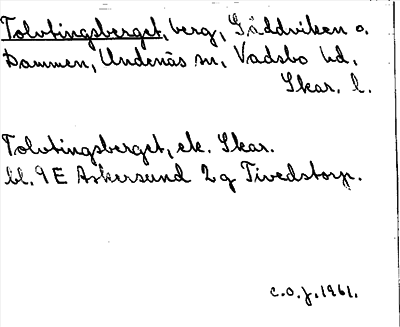 Tolvtingsberget, berg, Gäddviken o.
Dammen, Undenäs sn, Vadsbo hd,
Skar. l.
Tolvtingsberget, ek. Skar.
bl. 9 E Askersund 2 g Tivedstorp.
c.o.j. 1961.